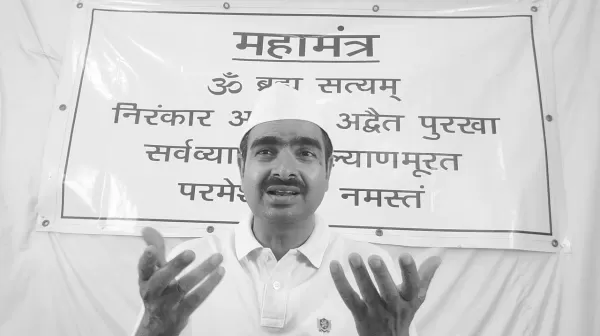 महामंत्र
ॐ ब्रह्म सत्यम्
निरंकार अद्वैत पुरखा
सर्वव्या ल्याणमूरत
परमे नमस्तं